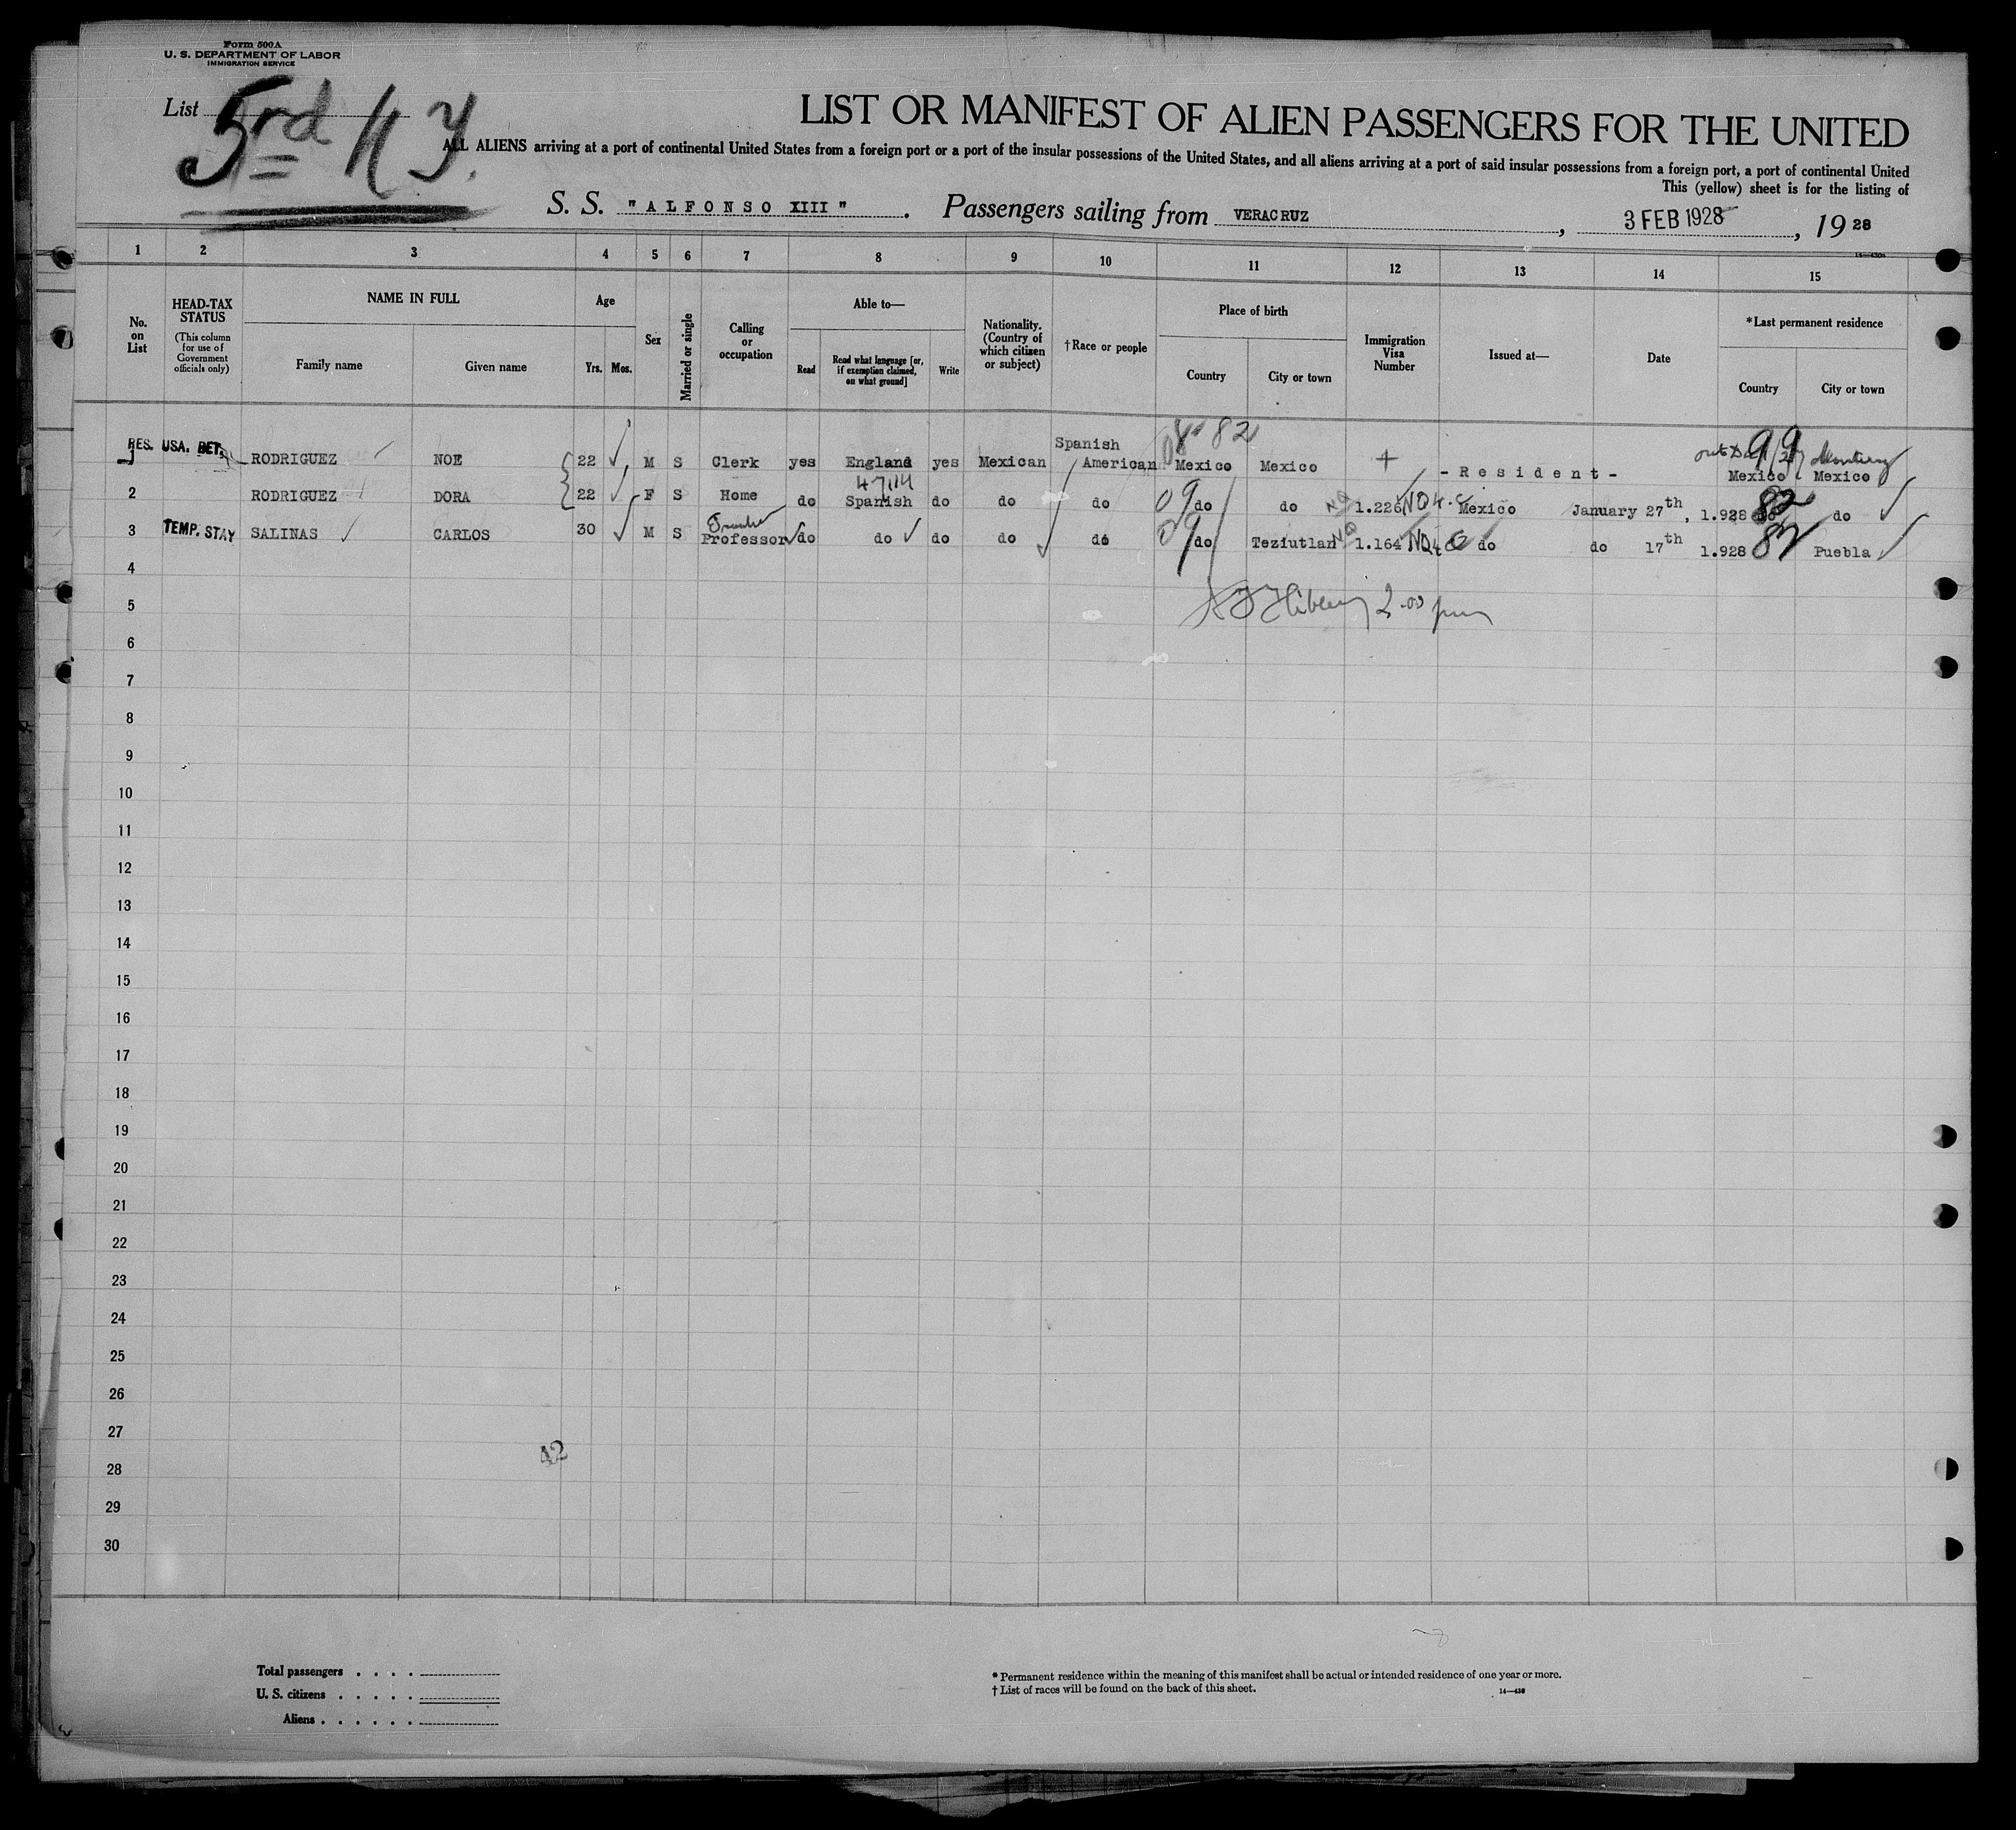 Form 500A
U. S. DEPARTMENT OF LABOR
IMMIGRATION SERVICE
List 3rd N Y.
LIST OR MANIFEST OF ALIEN PASSENGERS FOR THE UNITED
ALL ALIENS arriving at a port of continental United States from a foreign port or a port of the insular possessions of the United States, and all aliens arriving at a port of said insular possessions from a foreign port, a port of continental United
This (yellow) sheet is for the listing of
S. S. "ALFONSO XIII". Passengers sailing from VERACRUZ, 3 FEB 1928, 19 28
1 2 3 4 5 6 7 8 9 10 11 12 13 14 15
No. on List
HEAD-TAX STATUS
(This column for use of Government officials only)
NAME IN FULL
Family name Given name
Age
Yrs. Mos.
Sex
Married or single
Calling or occupation
Able to—
Read
Read what language [or, if exemption claimed, on what ground]
Write
Nationality. (Country of which citizen or subject)
†Race or people
Place of birth
Country City or town
Immigration Visa Number
Issued at—
Date
*Last permanent residence
Country City or town
08 82 99
1 RES. USA. RET. RODRIGUEZ NOE 22 M S Clerk yes England yes Mexican Spanish American Mexico Mexico - Resident - Mexico Mexico
2 RODRIGUEZ DORA 22 F S Home do Spanish do do do 09 do do 1.226 NQ 4-c Mexico January 27th, 1.928 82 do do
3 TEMP. STAY SALINAS CARLOS 30 M S Professor do do do do do 09 do Teziutlan 1.164 NQ 4 c do do 17th 1.928 82 Puebla
4
5 2.00 pm
6
7
8
9
10
11
12
13
14
15
16
17
18
19
20
21
22
23
24
25
26
27
42
28
29
30
Total passengers . . . .
U. S. citizens . . . . .
Aliens . . . . . .
* Permanent residence within the meaning of this manifest shall be actual or intended residence of one year or more.
† List of races will be found on the back of this sheet.
14—430